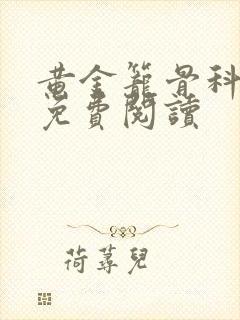 黄金籠骨科
免費閱讀
荷蕁兒